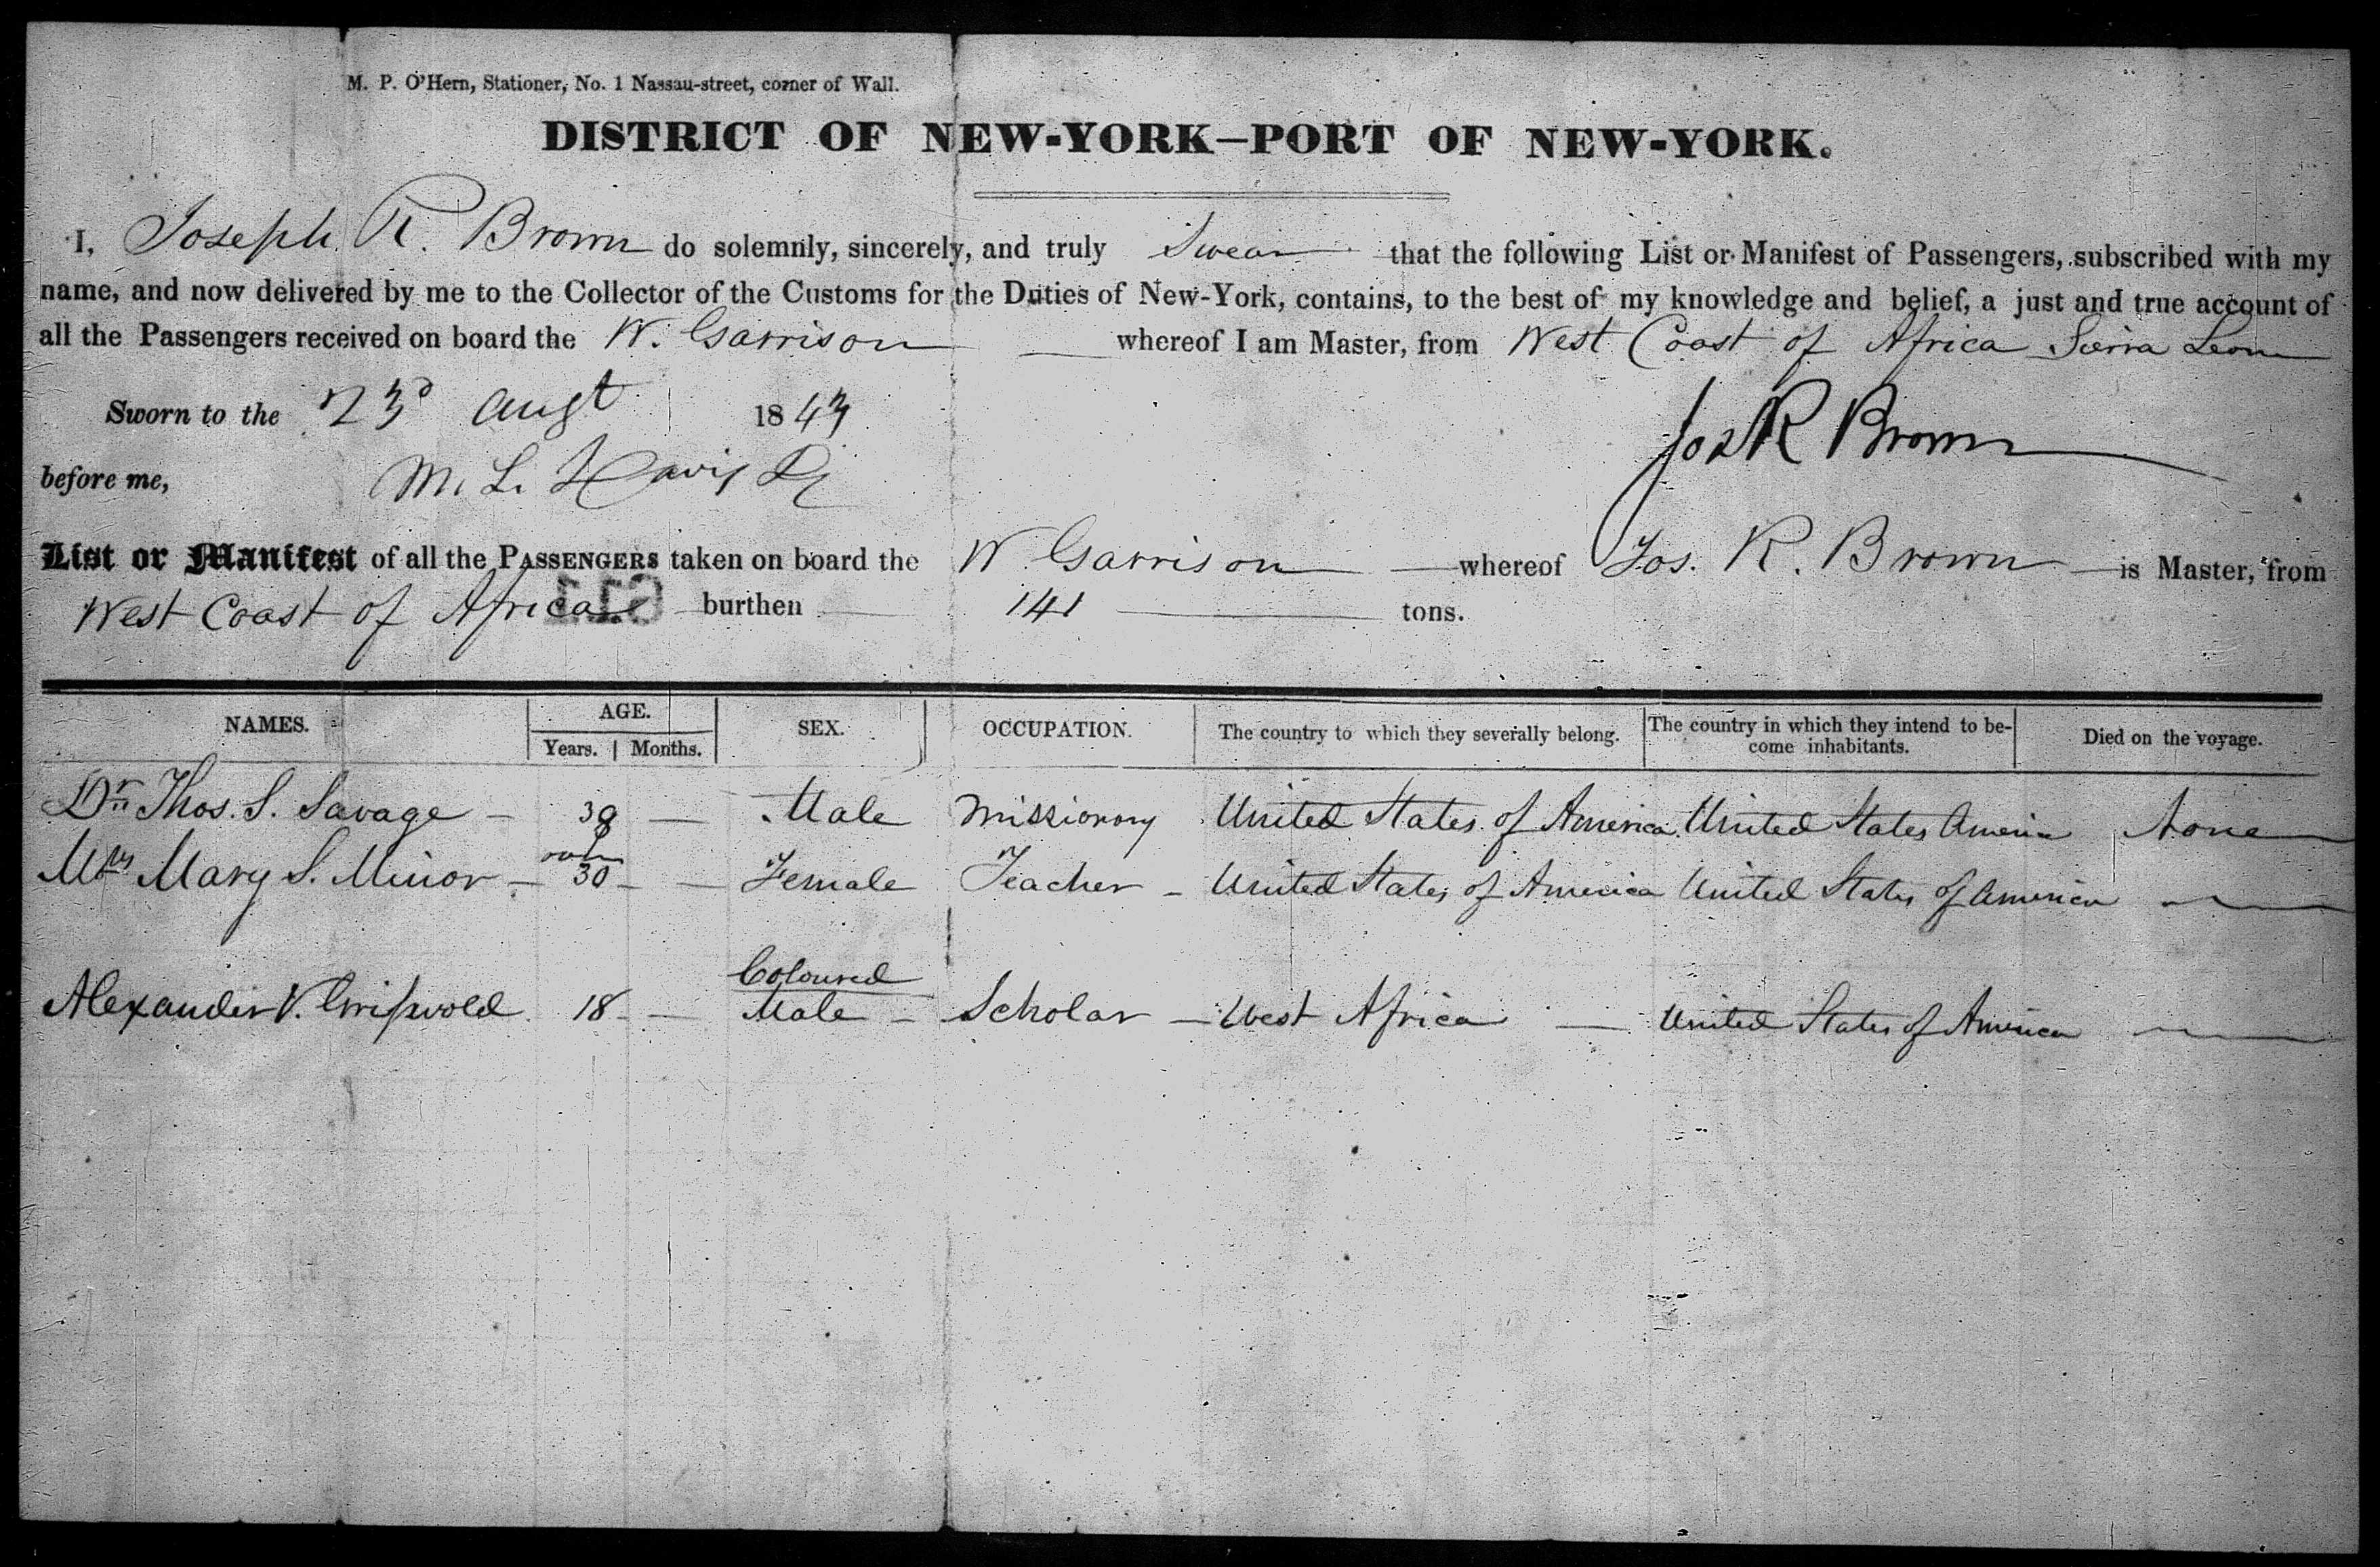 M. P. O'Hern, Stationer, No. 1 Nassau-street, corner of Wall.
DISTRICT OF NEW-YORK—PORT OF NEW-YORK.
I, Joseph R. Brown do solemnly, sincerely, and truly Swear that the following List or Manifest of Passengers, subscribed with my
name, and now delivered by me to the Collector of the Customs for the Duties of New-York, contains, to the best of my knowledge and belief, a just and true account of
all the Passengers received on board the W. Garrison whereof I am Master, from West Coast of Africa Sierra Leone
Sworn to the 23d Augt 1843
Jos R Brown
before me, M. L. Davis
List or Manifest of all the PASSENGERS taken on board the W Garrison whereof Jos. R. Brown is Master, from
West Coast of Africa burthen 141 tons.
NAMES. AGE. SEX. OCCUPATION. The country to which they severally belong. The country in which they intend to be-
come inhabitants. Died on the voyage.
Years. Months.
Dr. Thos. S. Savage – 39 — Male Missionary United States of America United States America None
Mrs Mary S. Minor – over 30 – — Female Teacher – United States of America United States of America —
Alexander V. Griswold 18 – — Coloured Male – Scholar – West Africa — United States of America —